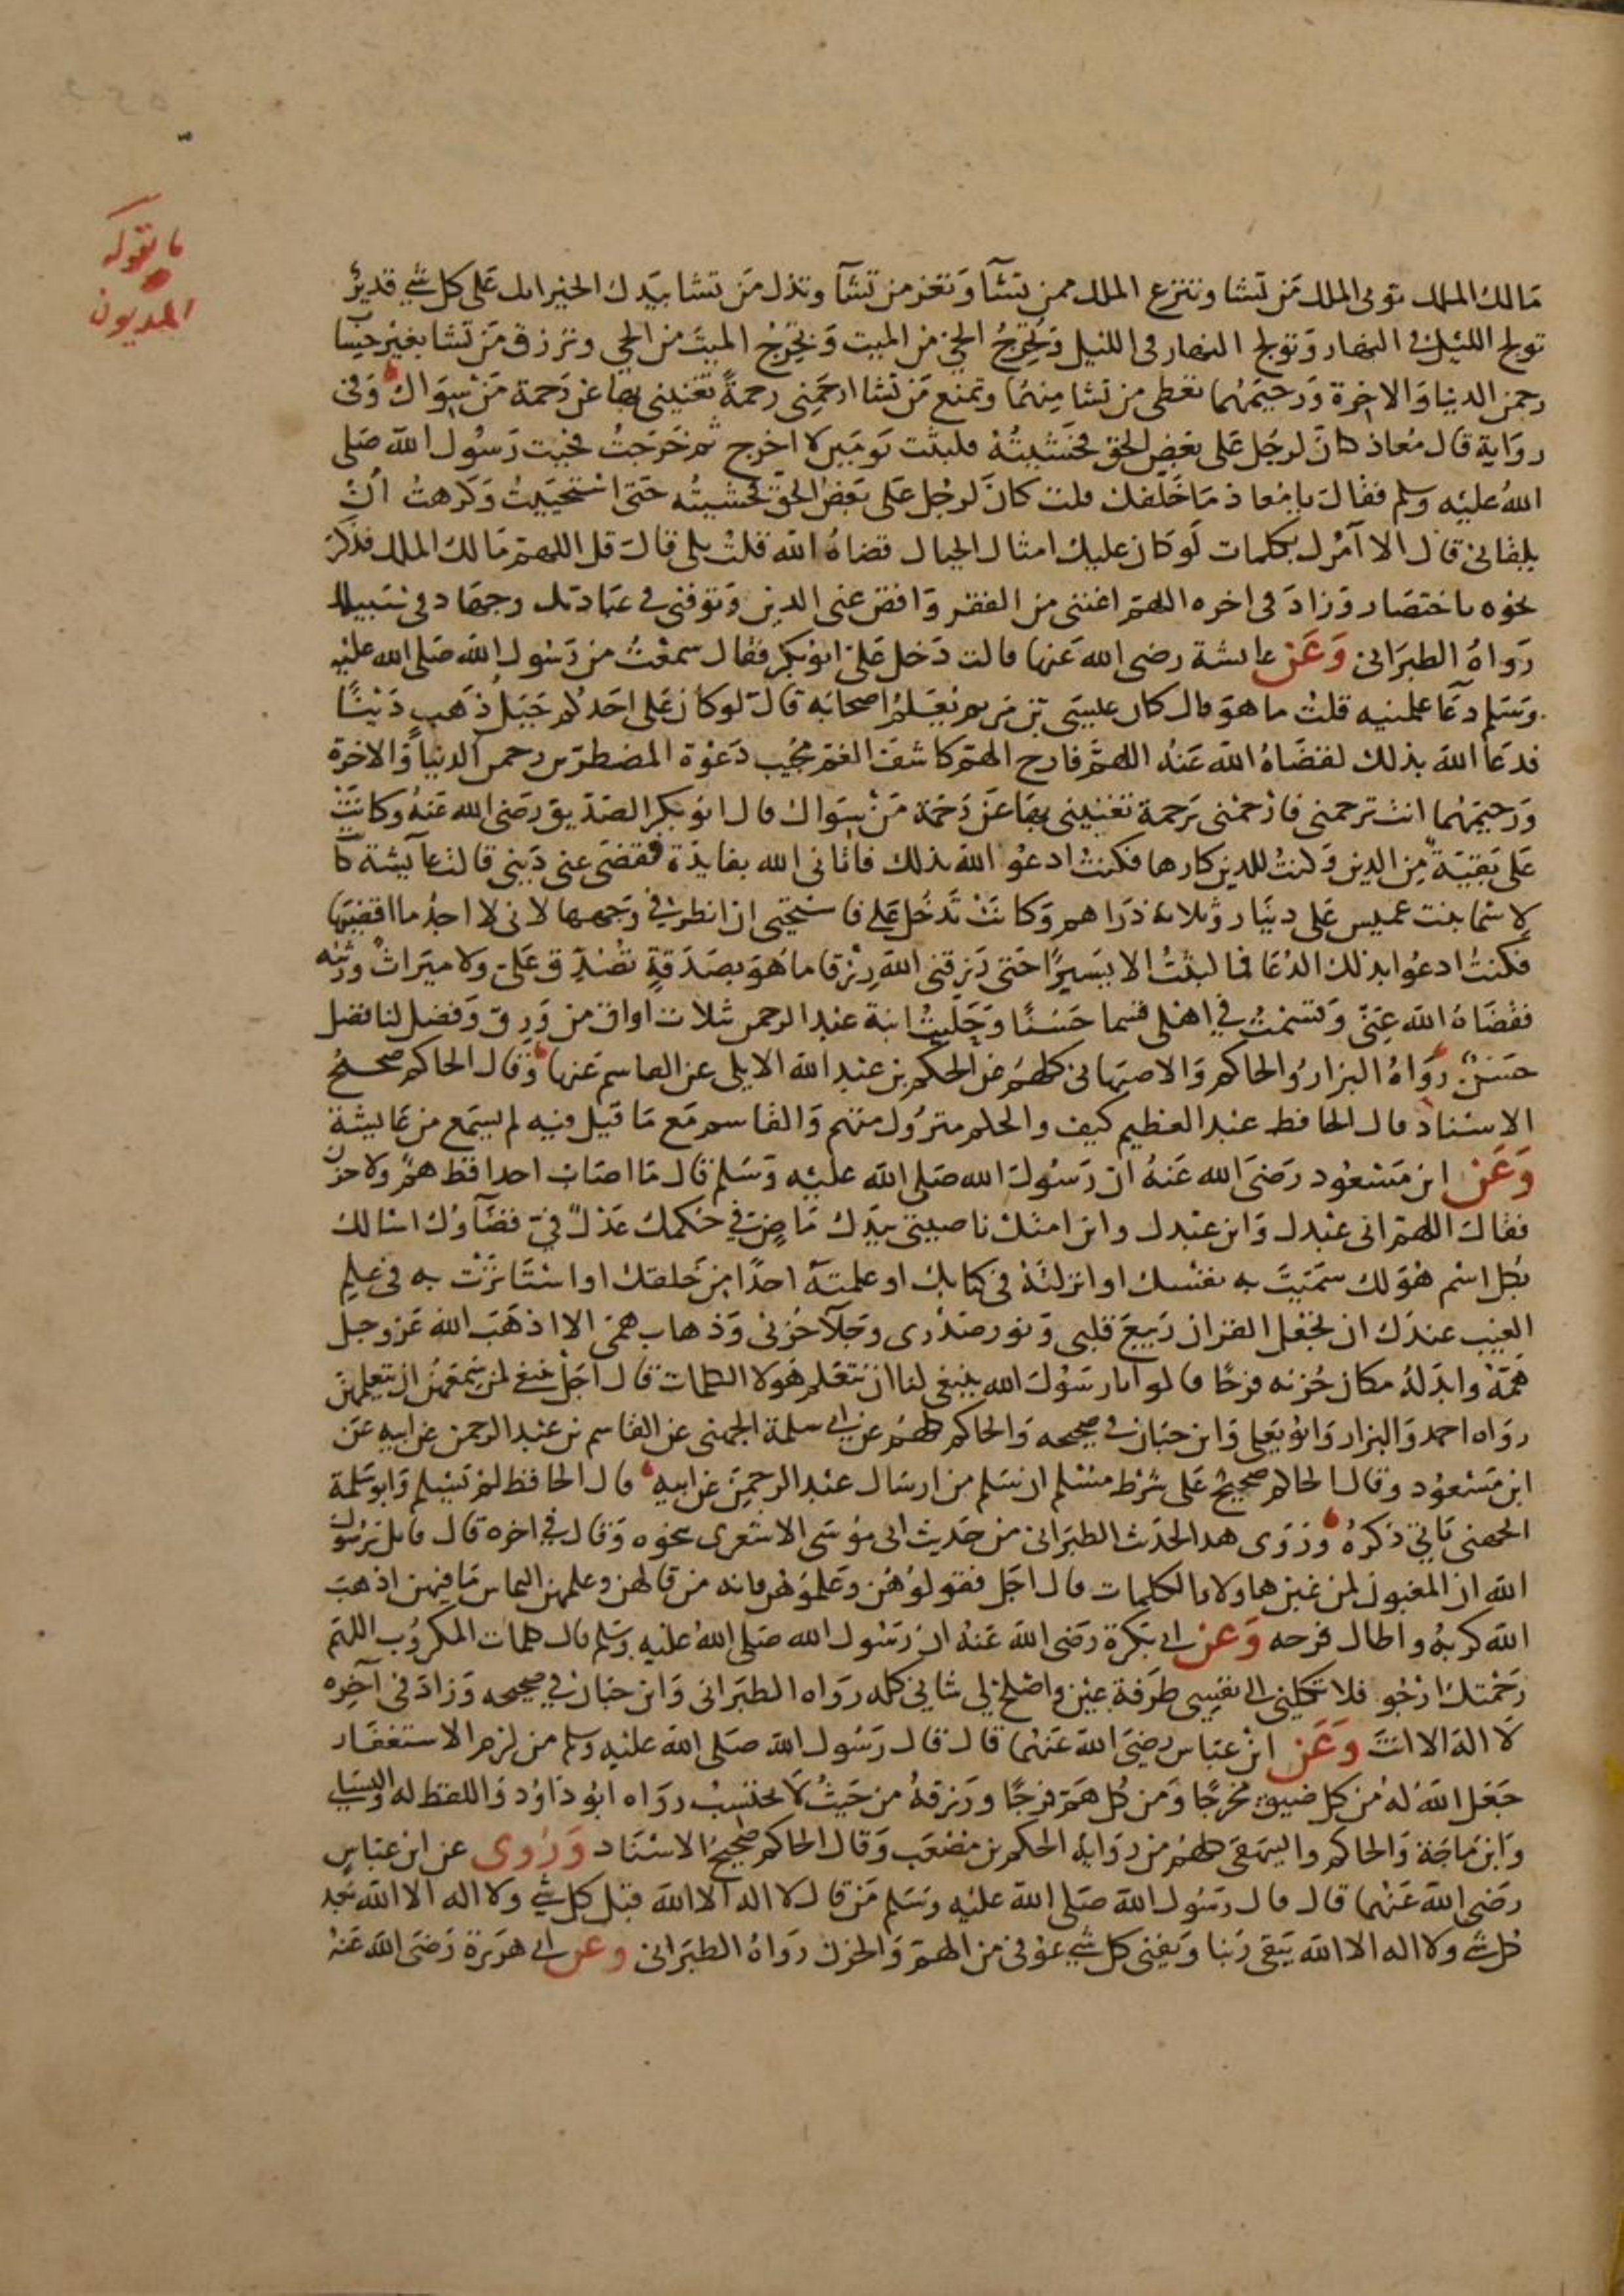 ما يقوله
المديون
مالك الملك توتى الملك من تشا وتنزع الملك ممن تشآ وتعز من تشآ وتذل من تشا بيدك الخير انك على كل شي قدير
تولج الليل في النهار وتولج النهار في الليل وتخرج الحي من الميت وتخرج الميت من الحي وترزق من تشا بغير حساب
رحمن الدنيا والاخرة ورحيمهما تعطى من تشا منهما وتمنع من تشا ارحمنى رحمة تغنينى بها عن رحمة من سواك وفى
رواية قال معاذ كان لرجل على بعض الحق فخشيته فلبثت يومين لا اخرج ثم خرجت فجيت رسول الله صلى
الله عليه وسلم فقال يا معاذ ما خلفك قلت كان لرجل على بعض الحق فخشيته حتى استحييت وكرهت ان
يلقانى قال الا آمرك بكلمات لو كان عليك امثال الجبال قضاه الله قلت بلى قال قل اللهم مالك الملك فذكر
نحوه باختصار وزاد فى اخره اللهم اغننى من الفقر واقض عنى الدين وتوفنى في عبادتك وجهاد فى سبيلك
رواه الطبرانى وعن عايشة رضى الله عنها قالت دخل على ابو بكر فقال سمعت من رسول الله صلى الله عليه
وسلم دعا علمنيه قلت ما هو قال كان عيسى بن مريم يعلم اصحابه قال لو كان على احدكم جبل ذهب دينا
فدعا الله بذلك لقضاه الله عنه اللهم فارج الهم كاشف الغم مجيب دعوة المضطرين رحمن الدنيا والاخرة
ورحيمهما انت ترحمنى فارحمنى برحمة تغنينى بها عن رحمة من سواك قال ابو بكر الصديق رضى الله عنه وكانت
على بقية من الدين وكنت للدين كارها فكنت ادعو الله بذلك فاتانى الله بفايدة فقضى عنى دينى قالت عآيشة كان
لاسما بنت عميس على دينار وثلاثة دراهم وكانت تدخل على فاستحيى ان انظر في وجهها لانى لا اجد ما اقضيها
فكنت ادعوا بذلك الدعا فما لبثت الا يسيرا حتى رزقنى الله رزقا ما هو بصدقة تصدق على ولا ميراث ورثته
فقضاه الله عنى وقسمت في اهلى قسما حسنا وحليت ابنة عبد الرحمن ثلاث اواق من ورق وفضل لنا فضل
حسن رواه البزار والحاكم والاصبهانى كلهم عن الحكم بن عبد الله الايلى عن القاسم عنها وقال الحاكم صحيح
الاسناد قال الحافظ عبد العظيم كيف والحكم متروك متهم والقاسم مع ما قيل فيه لم يسمع من عايشة
وعن ابن مسعود رضى الله عنه ان رسول الله صلى الله عليه وسلم قال ما اصاب احدا قط هم ولا حزن
فقال اللهم انى عبدك وابن عبدك وابن امتك ناصيتى بيدك ماض في حكمك عدل في قضآوك اسالك
بكل اسم هو لك سميت به نفسك او انزلته في كتابك او علمته احدا من خلقك او استاثرت به فى علم
الغيب عندك ان تجعل القران ربيع قلبى ونور صدرى وجلآ حزنى وذهاب همى الا اذهب الله عز وجل
همه وابدله مكان حزنه فرحا قالوا يا رسول الله ينبغى لنا ان نتعلم هولا الكلمات قال اجل ينبغى لمن سمعهن ان يتعلمهن
رواه احمد والبزار وابو يعلى وابن حبان في صحيحه والحاكم كلهم عن ابي سلمة الجهنى عن القاسم بن عبد الرحمن عن ابيه عن
ابن مسعود وقال الحاكم صحيح على شرط مسلم ان سلم من ارسال عبد الرحمن عن ابيه قال الحافظ لم تسلم وابو سلمة
الجهنى ياتي ذكره وروى هذا الحدث الطبرانى من حديث ابى موسى الاشعرى نحوه وقال في اخره قال قايل يرسول
الله ان المغبون لمن غبن هاولاء الكلمات قال اجل فقولوهن وعلموهن فانه من قالهن وعلمهن التماس ما فيهن اذهب
الله كربه واطال فرحه وعن ابي بكرة رضى الله عنه ان رسول الله صلى الله عليه وسلم قال كلمات المكروب اللهم
رحمتك ارجو فلا تكلنى الى نفسى طرفة عين واصلح لي شاني كله رواه الطبرانى وابن حبان في صحيحه وزاد فى آخره
لا اله الا انت وعن ابن عباس رضى الله عنهما قال قال رسول الله صلى الله عليه وسلم من لزم الاستغفار
جعل الله له من كل ضيق مخرجا ومن كل هم فرجا ورزقه من حيث لا يحتسب رواه ابو داود واللفظ له والنساي
وابن ماجة والحاكم والبيهقى كلهم من رواية الحكم بن مصعب وقال الحاكم صحيح الاسناد وروى عن ابن عباس
رضى الله عنهما قال قال رسول الله صلى الله عليه وسلم من قال لا اله الا الله قبل كل شي ولا اله الا الله بعد
كل شي ولا اله الا الله يبقى ربنا ويفنى كل شي عوفى من الهم والحزن رواه الطبرانى وعن ابي هريرة رضى الله عنه